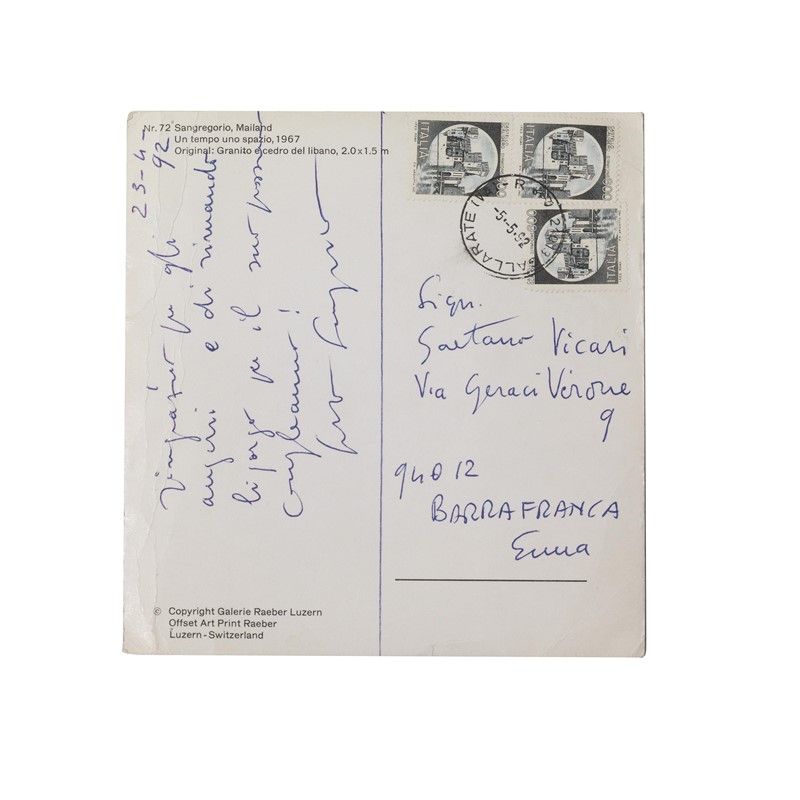 Nr. 72 Sangregorio, Mailand
Un tempo uno spazio, 1967
Original: Granito e cedro del libano, 2.0 x 1.5 m
23-4-92
ringrazio per gli
auguri e di rimando
li porgo per il suo
compleanno!
ITALIA
ITALIA
ITALIA
GALLARATE
-5-5.92
Sign.
Gaetano Vicari
Via Geraci Verone
9
94012
BARRAFRANCA
Enna
© Copyright Galerie Raeber Luzern
Offset Art Print Raeber
Luzern - Switzerland